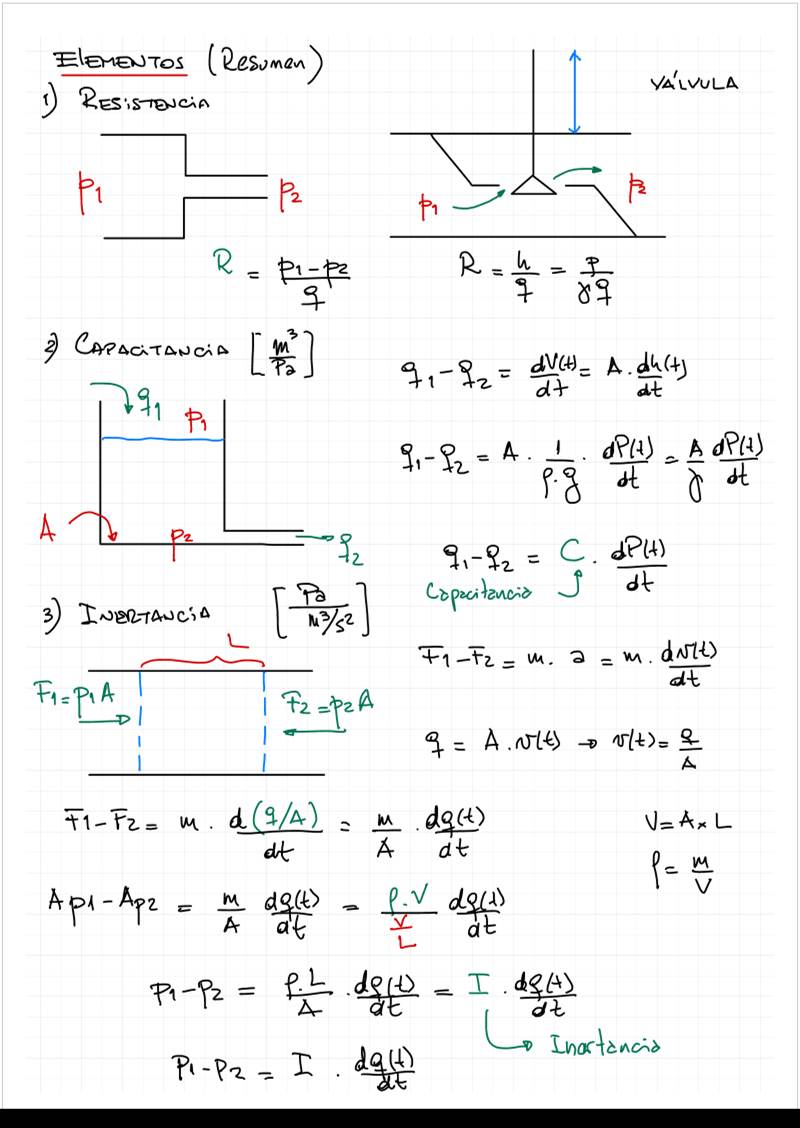 ELEMENTOS (Resumen)
1) RESISTENCIA
VÁLVULA
p1
p2
p1
p2
R = (p1-p2)/q
R = h/q = p/γq
2) CAPACITANCIA [m³/Pa]
q1
p1
A
p2
q2
q1-q2 = dV(t)/dt = A . dh(t)/dt
q1-q2 = A . 1/ρ.g . dP(t)/dt = A/γ dP(t)/dt
q1-q2 = C . dP(t)/dt
Capacitancia
3) INERTANCIA [Pa/m³/s²]
L
F1=p1A
F2=p2A
F1-F2 = m. a = m. dv(t)/dt
q = A.v(t) → v(t)= q/A
F1-F2 = m . d(q/A)/dt = m/A . dq(t)/dt
V=A x L
ρ= m/V
Ap1-Ap2 = m/A dq(t)/dt = ρ.V/(V/L) dq(t)/dt
p1-p2 = ρ.L/A . dq(t)/dt = I . dq(t)/dt
Inertancia
p1-p2 = I . dq(t)/dt